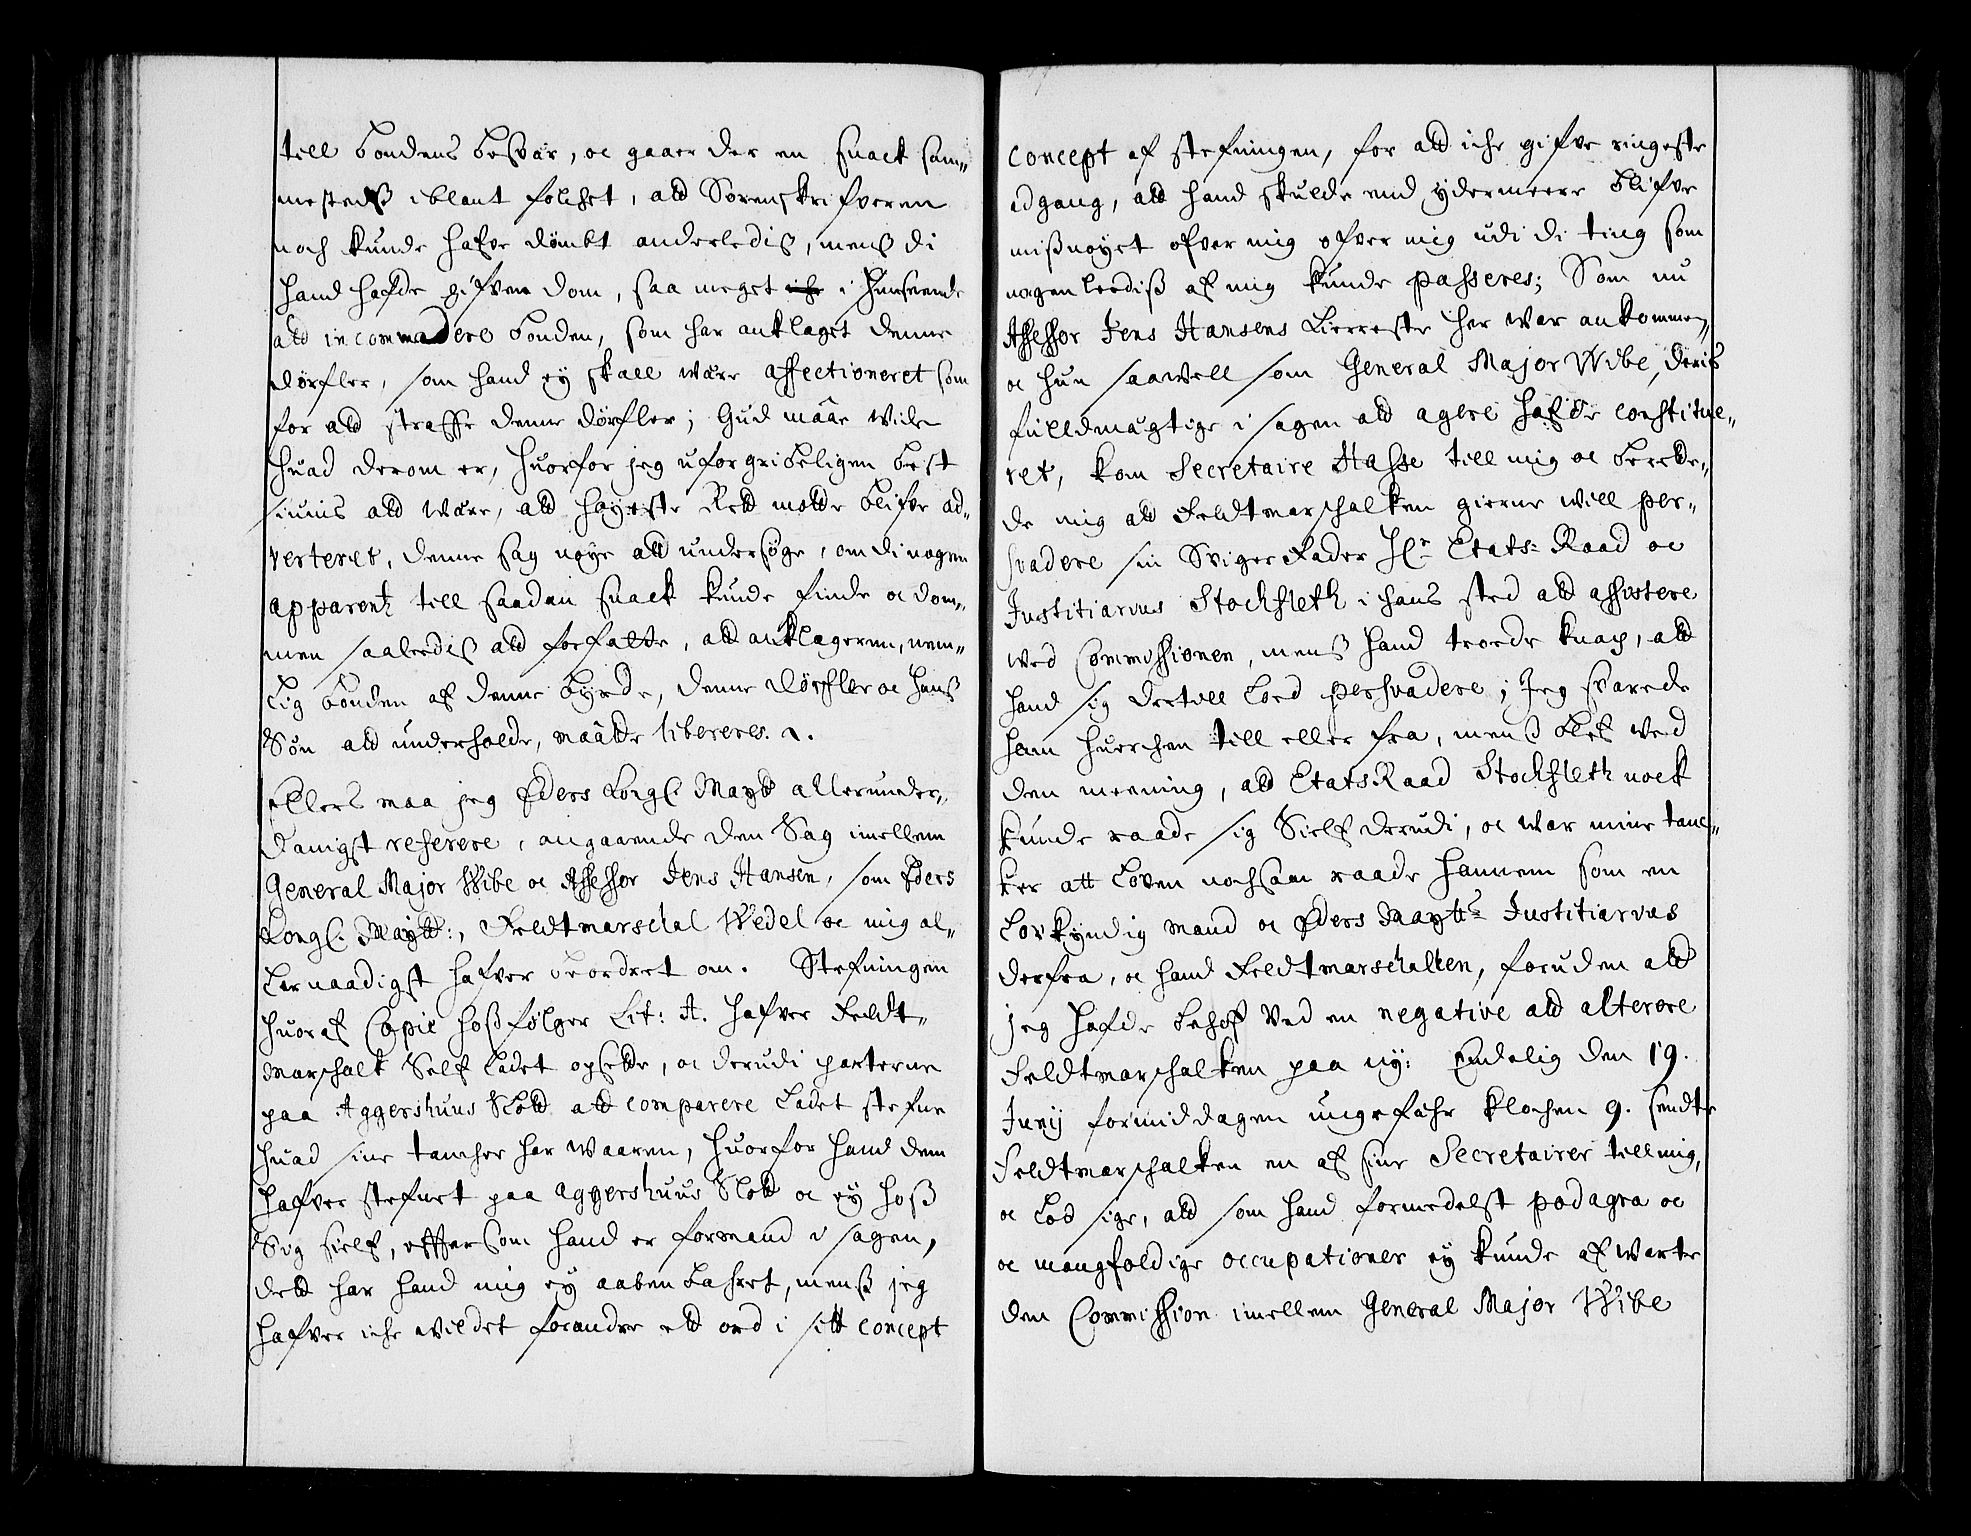 till bondens besvär, oc gaaer der en snack sam-
mesteds iblant folchet, ald Sørenskrifveren
noch kunde hafve dømbt anderledis, menß di
hand hafde gifven dom, saa meget i henseende
ald incommodere bonden, som har anklaget denne
dørfler, som hand ey skall være affectioneret som
for ald straffe denne dørfler; Gud mååe vide
huad derom er, huorfor jeg uforgribeligen best
siunis ald være, ald høyeste Rett motte blifve ad-
verteret, denne sag nøye ald undersøge, om di nogen
apparentz till saadan snack kunde finde oc dom-
men saaledis ald forfatte, ald anklageren, nem-
lig bonden af denne byrde, denne Dørfler oc hanß
Søn ald underholde, måatte libereres.
Ellers maa jeg Eders Kongl Maytt allerunder-
danigst referere, angaaende den Sag imellem
General Major Wibe oc Assessor Jens Hansen, som Eders
Kongl. Maytt:, Feldtmarschal Wedel oc mig al-
lernaadigst hafver beordret om. Stefningen
huoraf Copie hoßfølger Lit: A. hafver Feldt-
marschalk Self ladet opsette, oc derudi parterne
paa Aggershuus Slott ald comparere ladet stefne
huad sine tancher har waaren, huorfor hand dem
hafver stefnet paa Aggershuus Slott oc ey hoß
Sig sielf, effter som hand er formand i sagen,
dett har hand mig ey aabenbahret, menß jeg
hafver iche vildet forandre ett ord i sitt concept
concept af stefningen, for ald iche gifve ringeste
adgang, ald hand skulde end ydermeere blifve
mißnøyet ofver mig ofver mig udi di ting som
nogenleediß af mig kunde passeres; Som nu
Assessor Jens Hansens Kierreste her war ankommen,
oc hun saawell som General Major Wibe, deris
fuldmægtige i sagen ald agere hafde constitue-
ret, kom Secretaire Hasse till mig oc berette-
de mig ald Feldtmarschalken gierne will per-
svadere sin Sviger Fader Hr Etats-Raad oc
Justitiarius Stockfleth i hans sted ald assistere
wed Commissionen, menß hand troede knap, ald
hand sig dertill loed persvadere; Jeg svarede
ham huerchen till eller fra, menß blef ved
den meening, ald EtatsRaad Stockfleth nock
kunde raade sig Sielf derudi, oc war mine tanc-
ker att Loven nochsam raade hannem som en
Lovkyndig mand oc Eders Maytts Justitiarius
derfra, oc hand Feldtmarschalken, foruden ald
jeg hafde behof Ved en negative ald alterere
Feldtmarschalken paa ny: Endelig den 19.
Junij formiddagen ungefähr klochen 9. sendte
Feldtmarschalken en af sine Secretairer till mig,
oc lod sige, ald som hand formedelst podagra oc
oc mangfoldige occupationer ey kunde afwarte
den Commission imellem General Major Wibe